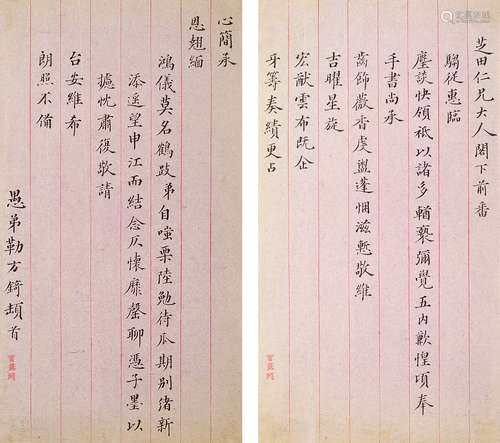 芝田仁兄大人閣下前番
騶從惠臨
麈談快領祗以諸多輶褻彌覺五內歉惶頃奉
手書尚承
齒飾薇香虔盥蓬悃滋慙敬維
吉曜星旋
宏猷雲布既企
牙籌奏績更占
心簡承
恩翹緬
鴻儀莫名鶴跂弟自嗤栗陸勉待瓜期別緒新
添遙望申江而結念仄懷靡罄聊憑子墨以
攄忱肅復敬請
台安維希
朗照不備
愚弟勒方錡頓首